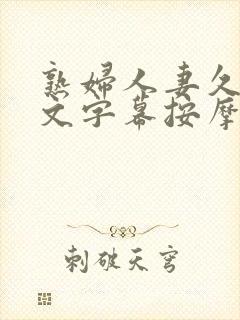 熟婦人妻久
文字幕按摩
刺破天穹